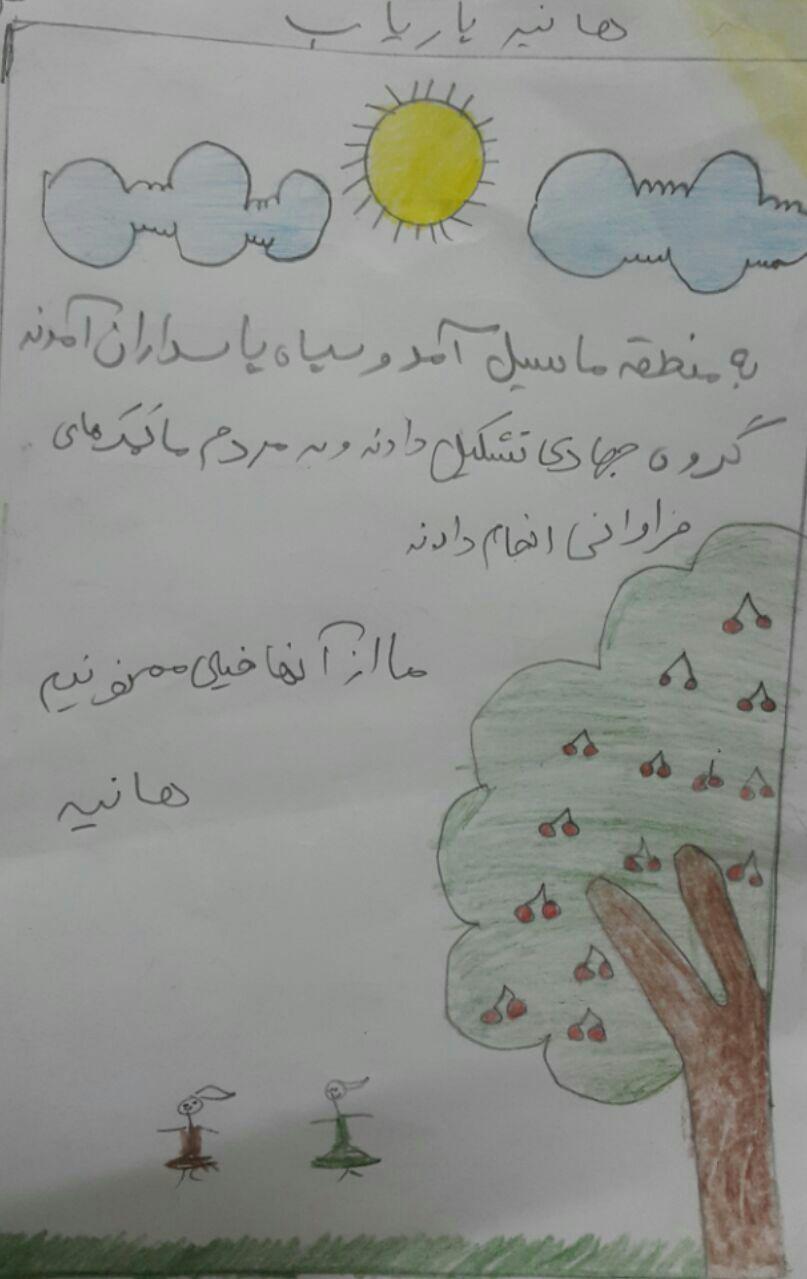 هانیه یاریاب
به منطقه ما سیل آمد و سپاه پاسداران آمدند
گروه جهادی تشکیل دادند و به مردم ما کمک های
فراوانی انجام دادند
ما از آنها خیلی ممنونیم
هانیه